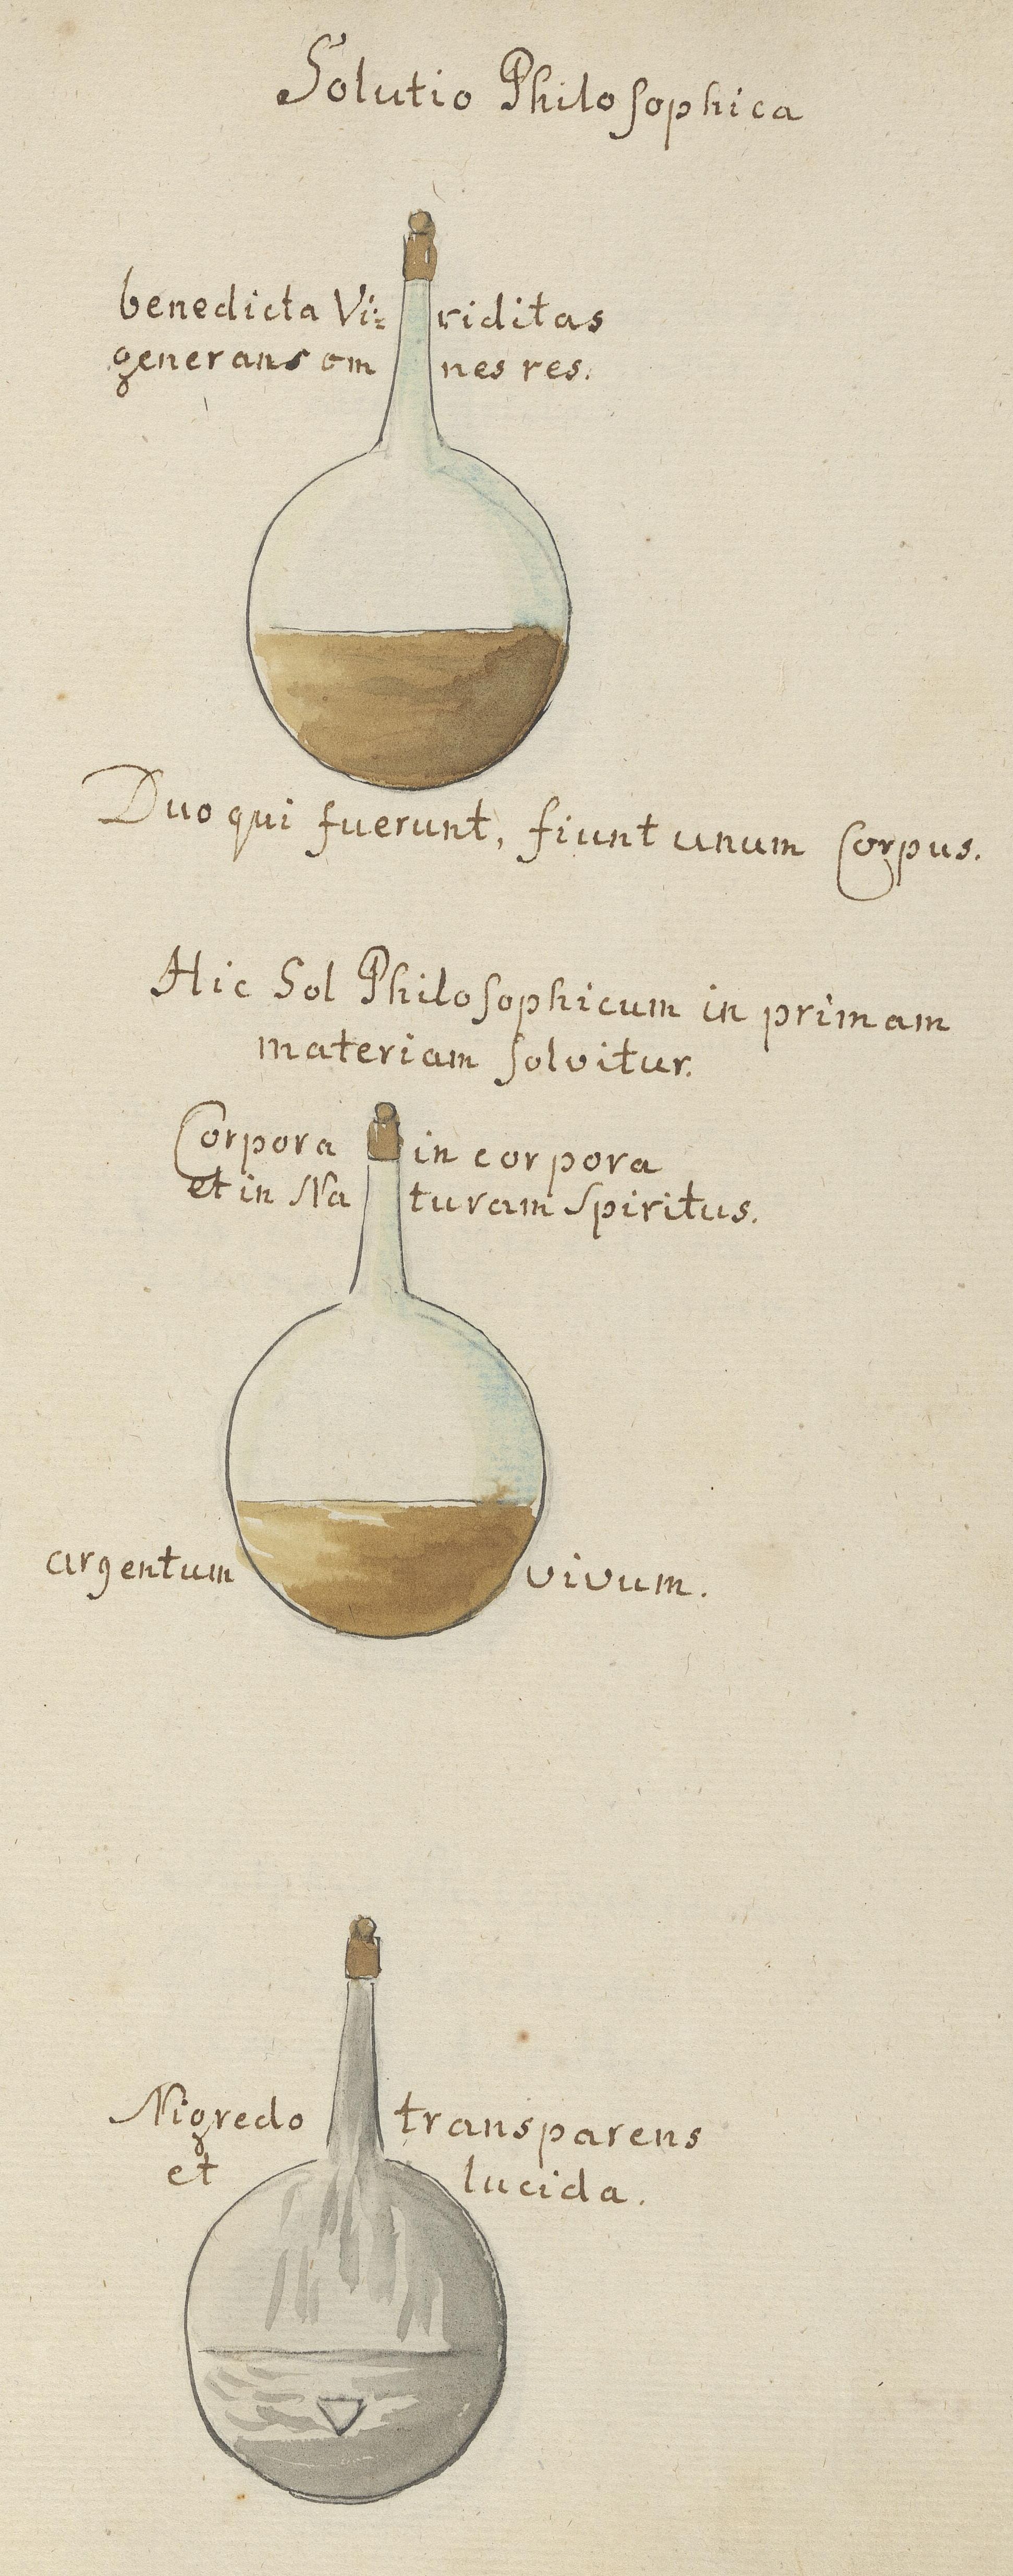 Solutio Philosophica
benedicta Vi: riditas
generans om nes res.
Duo qui fuerunt, fiunt unum Corpus.
Hic Sol Philosophicum in primam
materiam solvitur.
Corpora in corpora
et in Na turam Spiritus.
argentum vivum.
Nigredo transparens
et lucida.